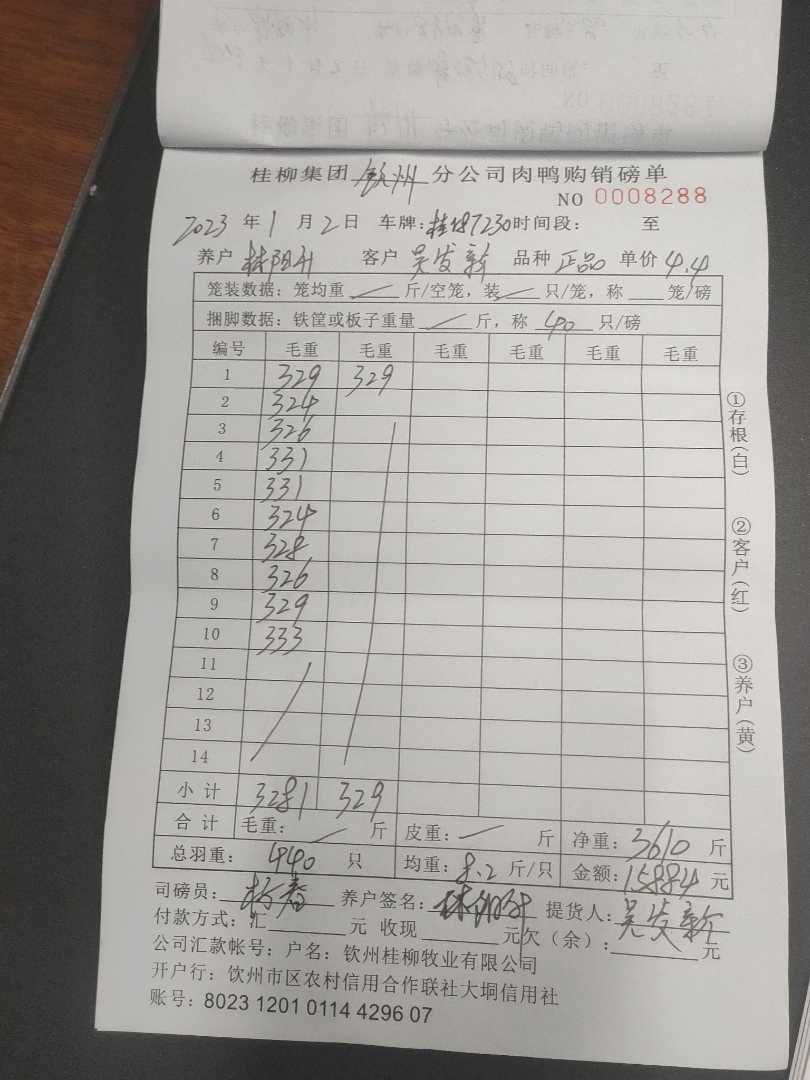 桂柳集团 钦州 分公司肉鸭购销磅单
NO 0008288
2023 年 1 月 2 日 车牌: 桂 7230 时间段: 至
养户 林阳升 客户 吴发新 品种 正品 单价 4.4
笼装数据: 笼均重 / 斤/空笼, 装 / 只/笼, 称 笼/磅
捆脚数据: 铁筐或板子重量 / 斤, 称 40 只/磅
编号 毛重 毛重 毛重 毛重 毛重 毛重
1 329 329
2 324
3 326
4 331
5 331
6 324
7 328
8 326
9 329
10 333
11
12
13
14
小计 3281 329
合计 毛重: / 斤 皮重: / 斤 净重: 3610 斤
总羽重: 440 只 均重: 8.2 斤/只 金额: 15884 元
司磅员: 杨春 养户签名: 提货人: 吴发新
付款方式: 汇 元 收现 元欠(余): 元
公司汇款帐号: 户名: 钦州桂柳牧业有限公司
开户行: 钦州市区农村信用合作联社大垌信用社
账号: 8023 1201 0114 4296 07
①存根(白)
②客户(红)
③养户(黄)